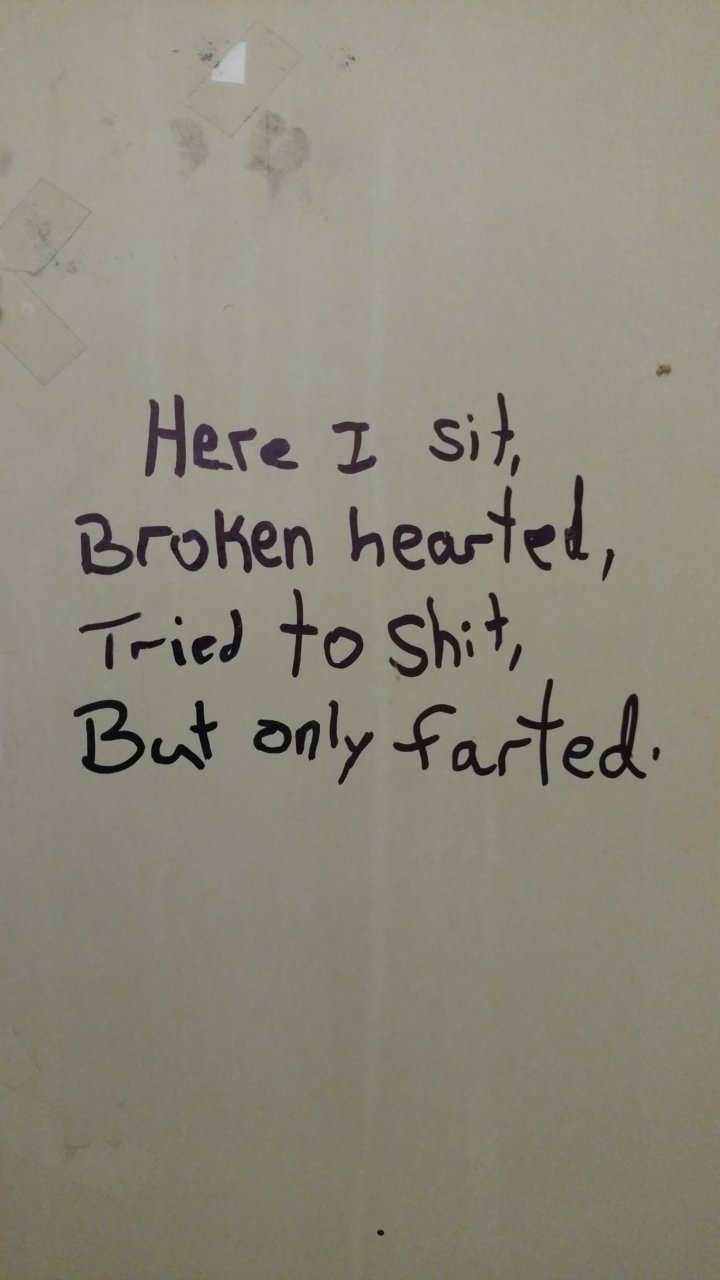 Here I sit,
Broken hearted,
Tried to shit,
But only farted.